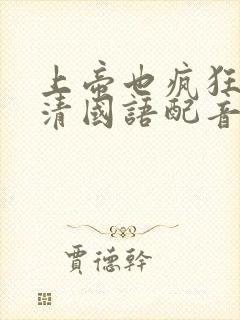 上帝也瘋狂
清國語配音
賈德幹